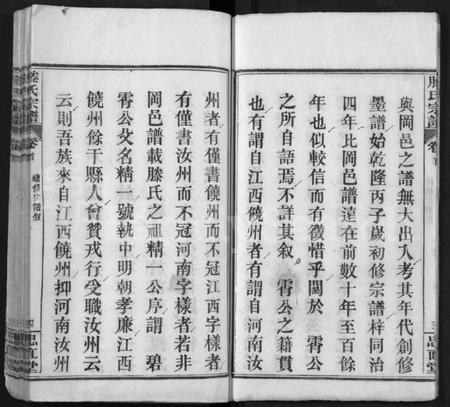 與岡邑之譜無大出入考其年代創修
墨譜始乾隆丙子歲初修宗譜梓同治
四年比岡邑譜達在前數十年至百餘
年也似較信而有徵惜乎關於 霄公
之所自語焉不詳其叙 霄公之籍貫
也有謂自江西饒州者有謂自河南汝
滕氏宗譜
卷首
三
思直堂
州者有僅書饒州而不冠江西字樣者
有僅書汝州而不冠河南字樣者若非
岡邑譜載滕氏之祖精一公序謂 碧
霄公父名精一號執中明朝孝廉江西
饒州餘干縣人會贊戎行受職汝州云
云則吾族來自江西饒州抑河南汝州
滕氏宗譜
卷首
續修宗譜叙
四
思直堂